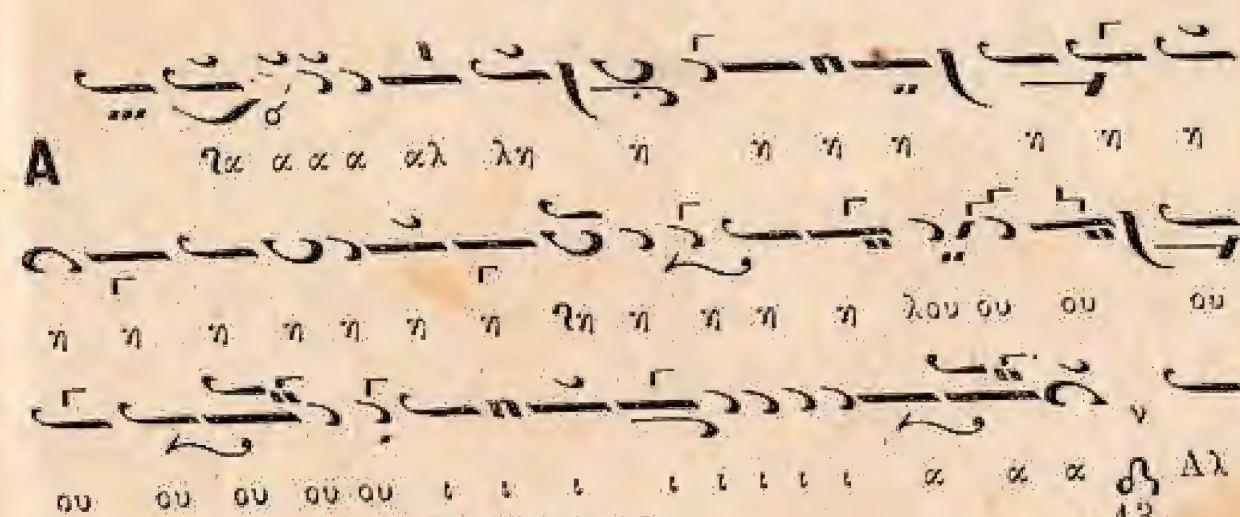 Α ϥα α α α αλ λη η η η η η η η
η η η η η η η ϥη η η η η λου ου ου ου
ου ου ου ου ου ι ι ι ι ι ι ι ι α α α Αλ